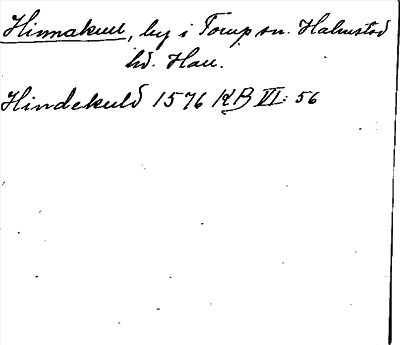 Hinnakull, by i Torup sn. Halmstad
hd. Hall.
Hindekuld 1576 KB VI: 56